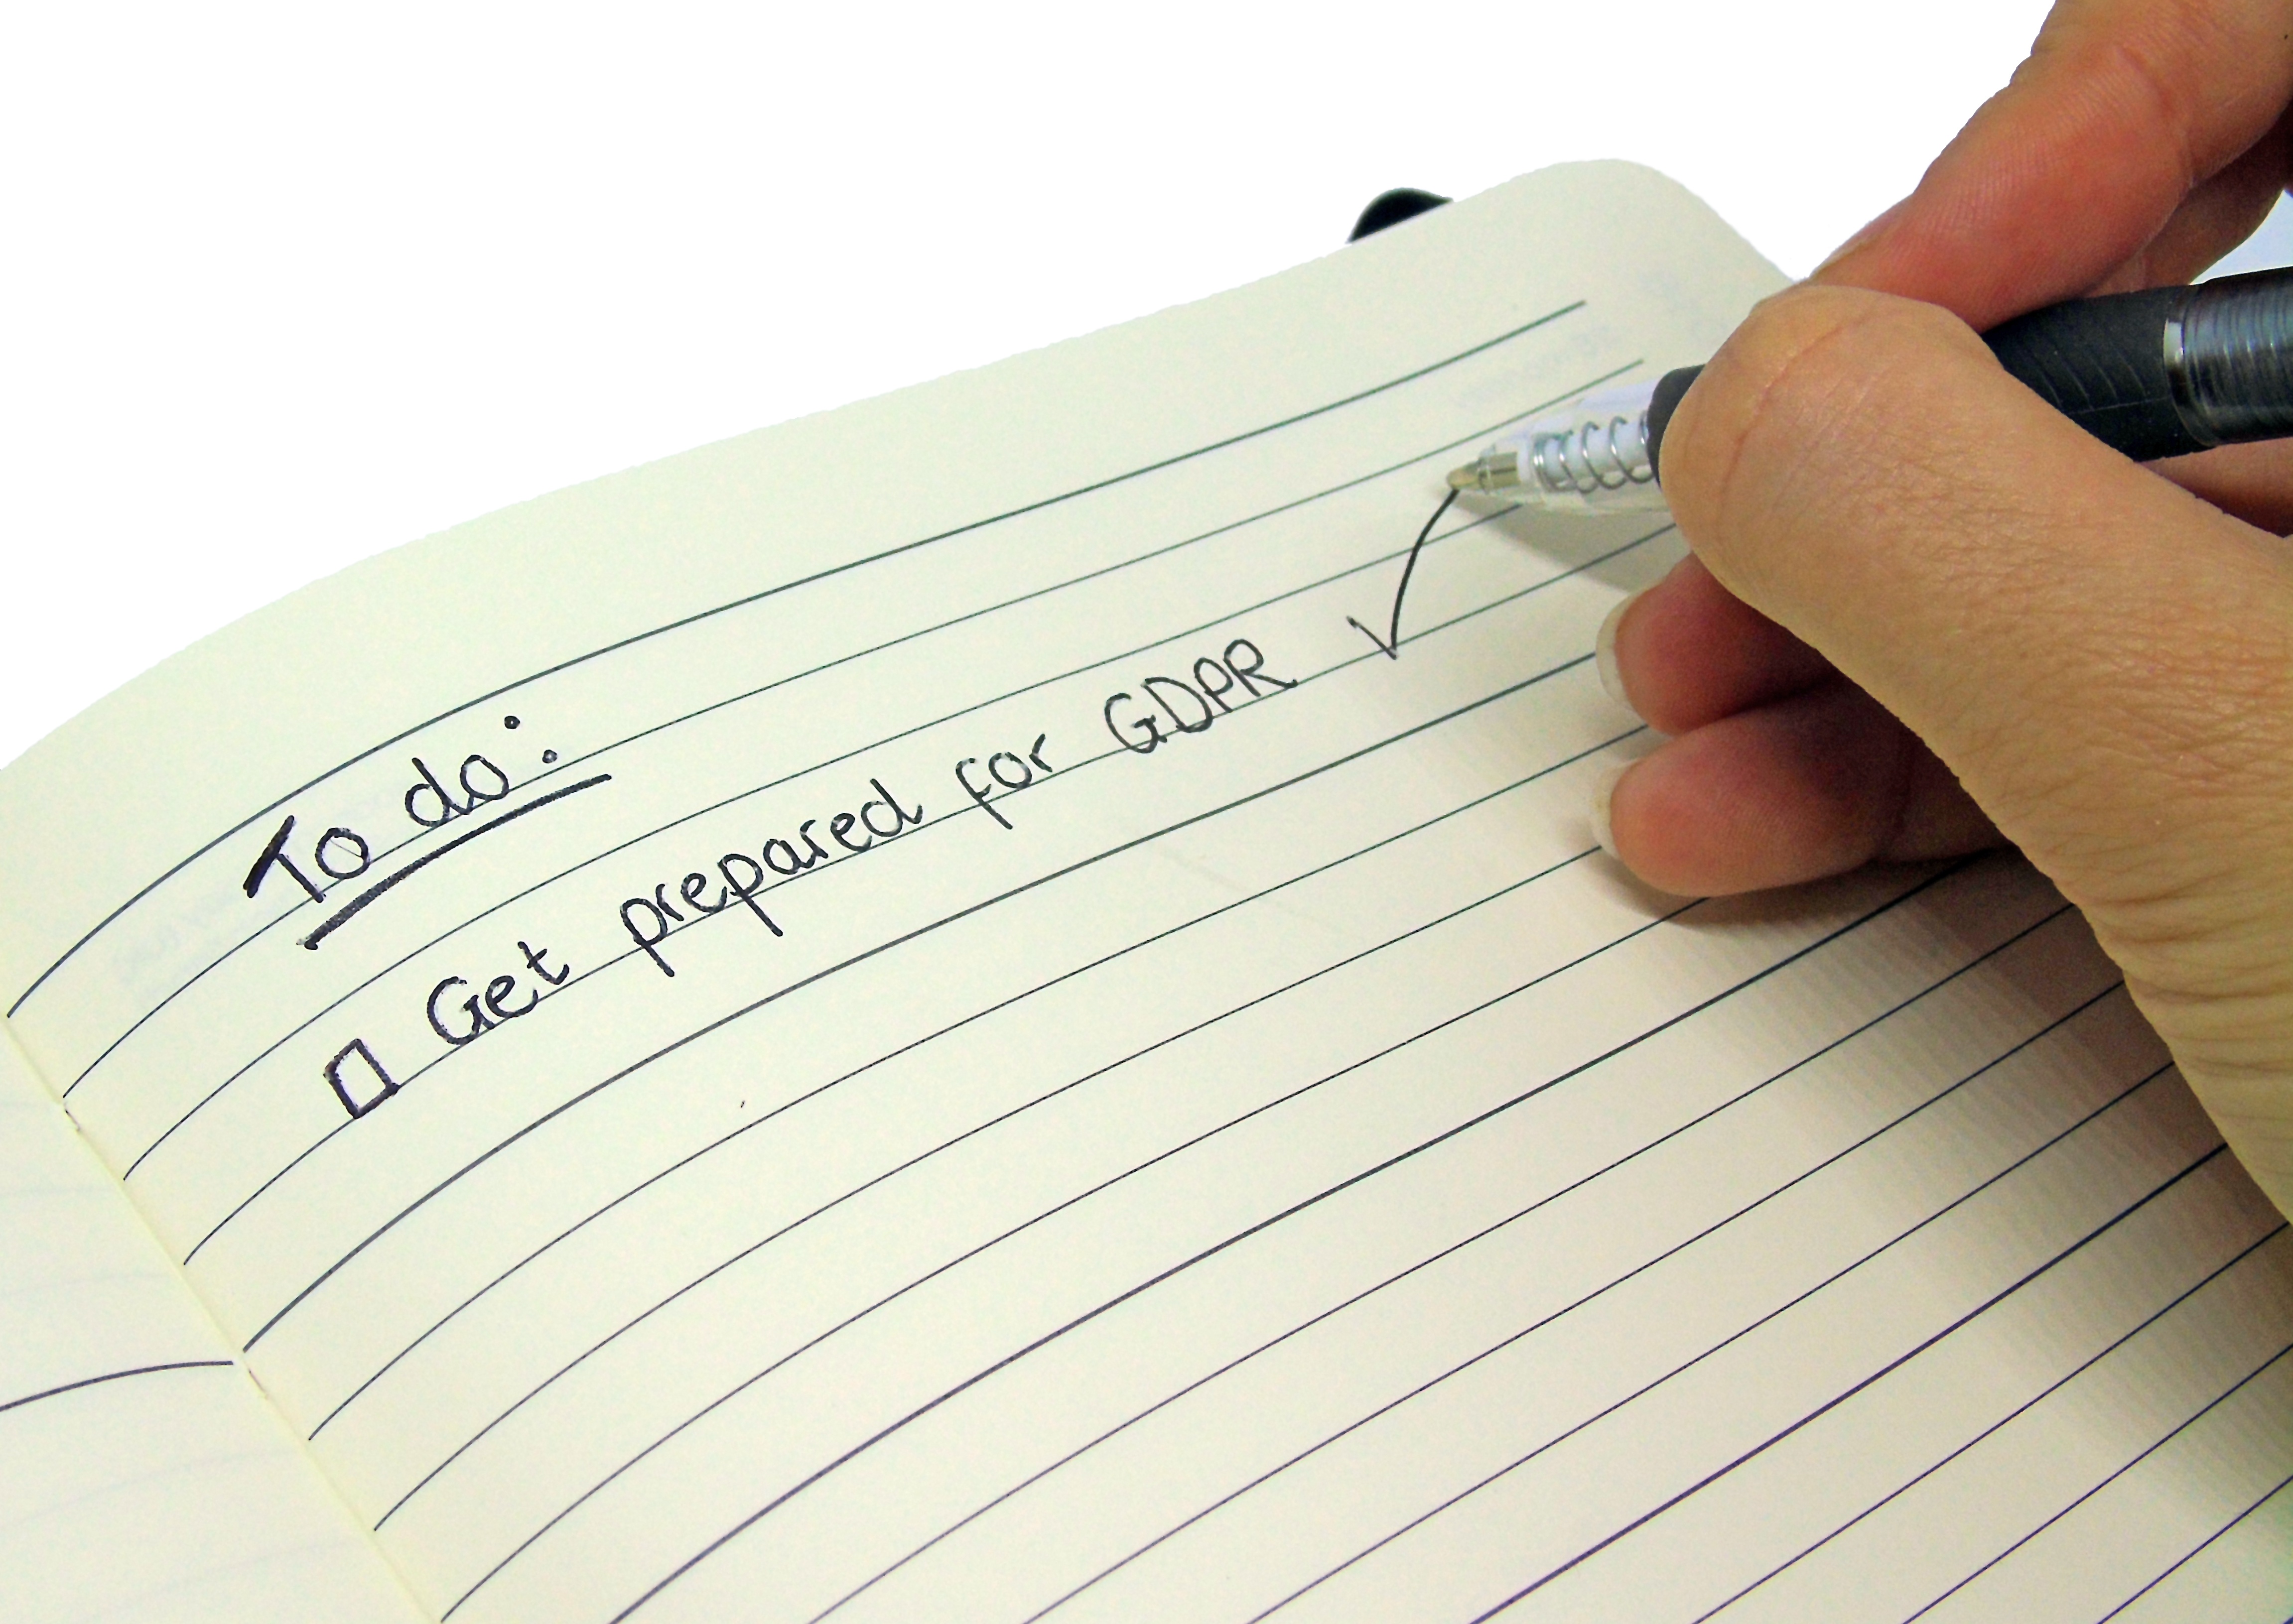 To do:
☐ Get prepared for GDPR ✓